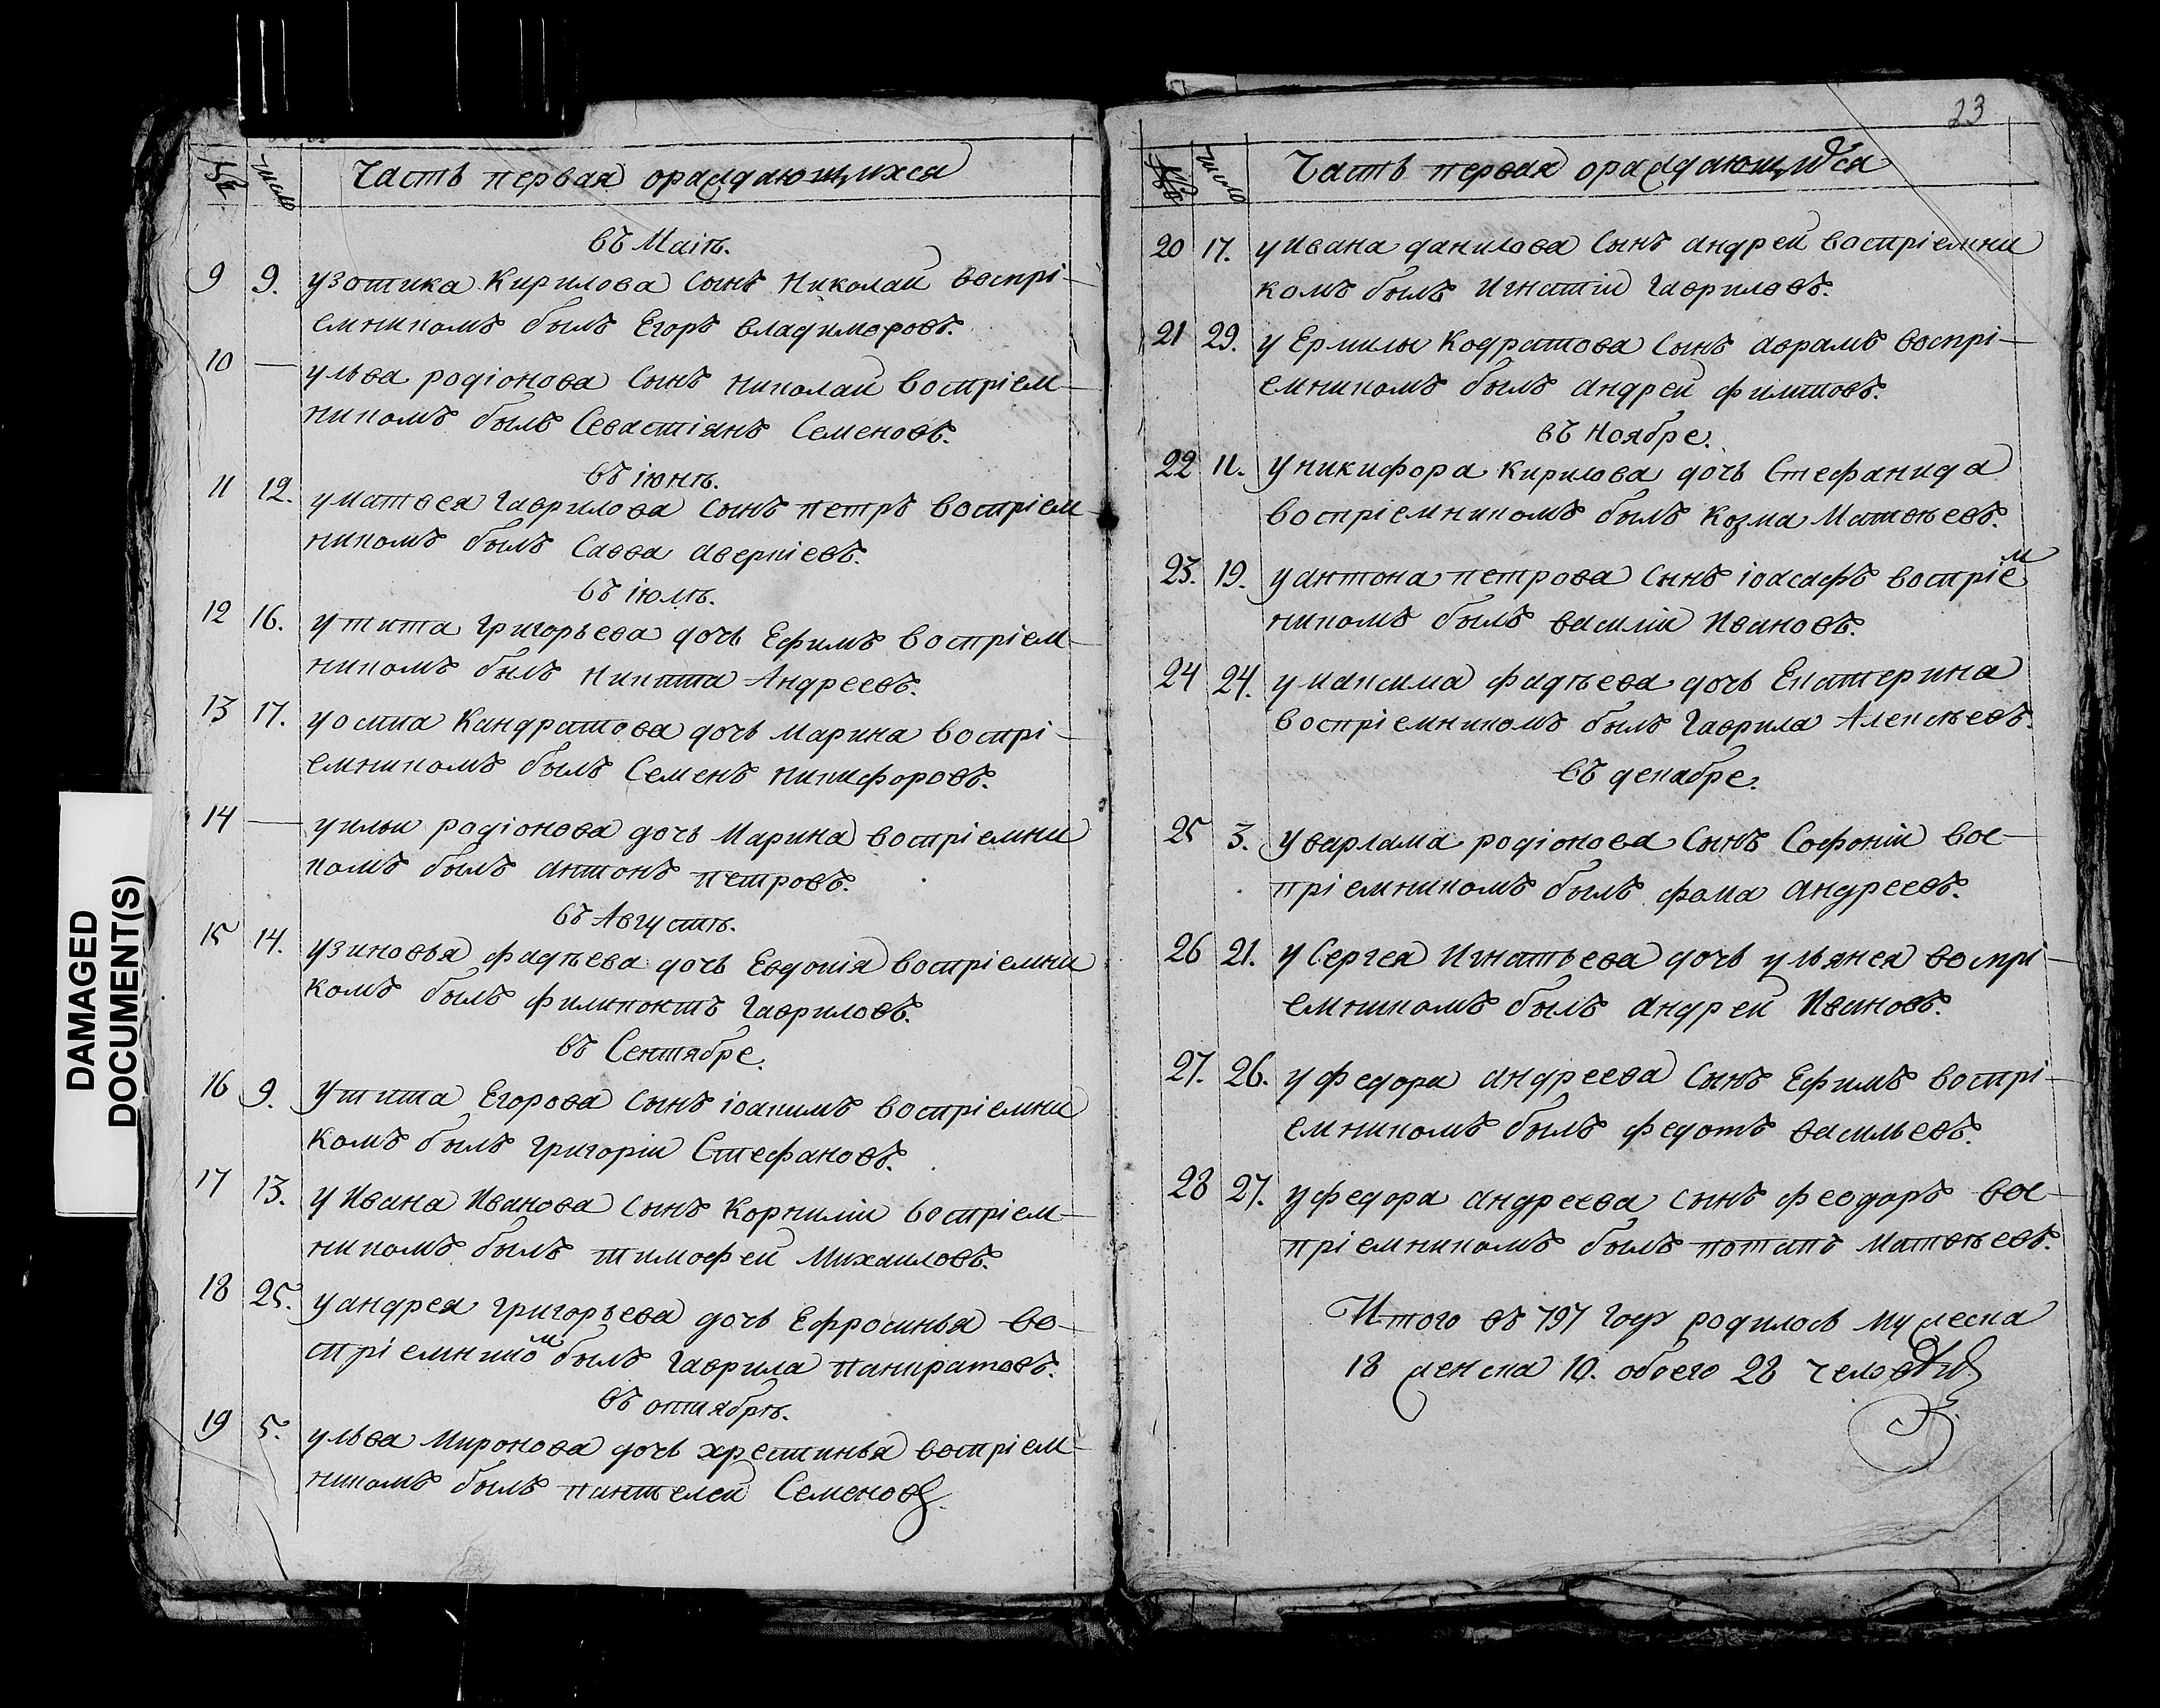 № Число Часть первая ораждающихся
въ Маіѣ.
9 9. узотика Кирилова Сынъ Николай воспрі-
емникомъ былъ Егоръ владимеровъ.
10 — ульва родіонова Сынъ николай воспріем-
никомъ былъ Севастіянъ Семеновъ.
въ іюнѣ.
11 12. уматвея Гаврилова Сынъ петръ воспріем-
никомъ былъ Савва аверкіевъ.
въ іюлѣ.
12 16. утита григорьева дочь Ефимъ воспріем-
никомъ былъ никита Андреевъ.
13 17. уосипа Кандратова дочь марина воспрі-
емникомъ былъ Семенъ никифоровъ.
14 — уильи родіонова дочь Марина воспріемни
комъ былъ антонъ петровъ.
въ Августѣ.
15 14. узиновья фадѣева дочь Евдокія воспріемни
комъ былъ филиппонтъ Гавриловъ.
въ Сентябре.
16 9. утита Егорова Сынъ іоакимъ воспріемни
комъ былъ григорій Стефановъ.
17 13. уИвана Иванова Сынъ Корнилій воспріем-
никомъ былъ тимофей Михаиловъ.
18 25. уандрея григорьева дочь Ефросинья во-
спріемникомъ былъ Гаврила панкратовъ.
въ октябрѣ.
19 5. ульва миронова дочь хрестинья воспріем-
никомъ былъ пантелей Семеновъ.
DAMAGED
DOCUMENT(S)
23
№ Число Часть первая ораждающихся
20 17. уИвана данилова Сынъ андрей воспріемни
комъ былъ Игнатій Гавриловъ.
21 29. уЕрмилы Кодратова Сынъ аврамъ воспрі-
емникомъ былъ андрей филиповъ.
въ ноябре.
22 11. уникифора кирилова дочь Стефанида
воспріемникомъ былъ козма Матвѣевъ.
23. 19. уантона петрова Сынъ іоасафъ воспріем
никомъ былъ василій Ивановъ.
24 24. умаксима фадѣева дочь Екатерина
воспріемникомъ былъ Гаврила Алексѣевъ.
въ декабре.
25 3. уварлама родіонова Сынъ Софоній вос-
пріемникомъ былъ фома андреевъ.
26 21. уСергея Игнатьева дочь ульянея воспрі-
емникомъ былъ андрей Ивановъ.
27. 26. уфедора андреева Сынъ Ефимъ воспрі-
емникомъ былъ федотъ васильевъ.
28 27. уфедора андреева Сынъ феодоръ вос-
пріемникомъ былъ потапъ Матвѣевъ.
Итого въ 797 году родилось мужеска
18 женска 10. обоего 28 человѣкъ